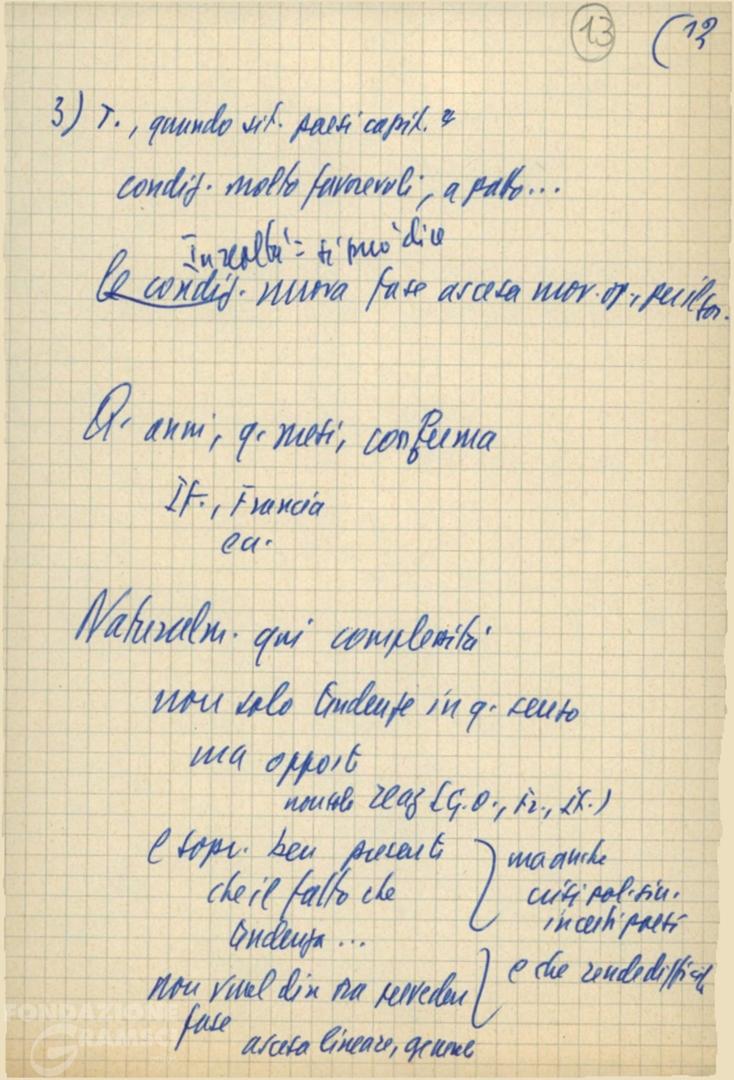 13 (12
3) T., quando sit. paesi capit.
condiz. molto favorevoli, a patto...
In realtà = si può dire
le condiz. nuova fase ascesa mov. op.,
Q. anni, q. mesi, conferma
It., Francia
ecc.
Naturalm. qui complessità
non solo tendenze in q. senso
ma opposte
non solo reaz (G.O., Fr., It.)
e sopr. ben presenti
che il fatto che
tendenza ...
ma anche
crisi pol. sin.
in certi paesi
non vuol dire prevedere
fase
ascesa lineare, generale
e che rende difficile
FONDAZIONE
GRAMSCI